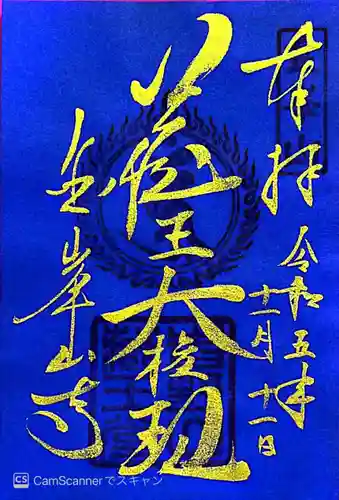 奉拝
令和五年
十一月十一日
蔵王大権現
金峯山寺
CamScannerでスキャン